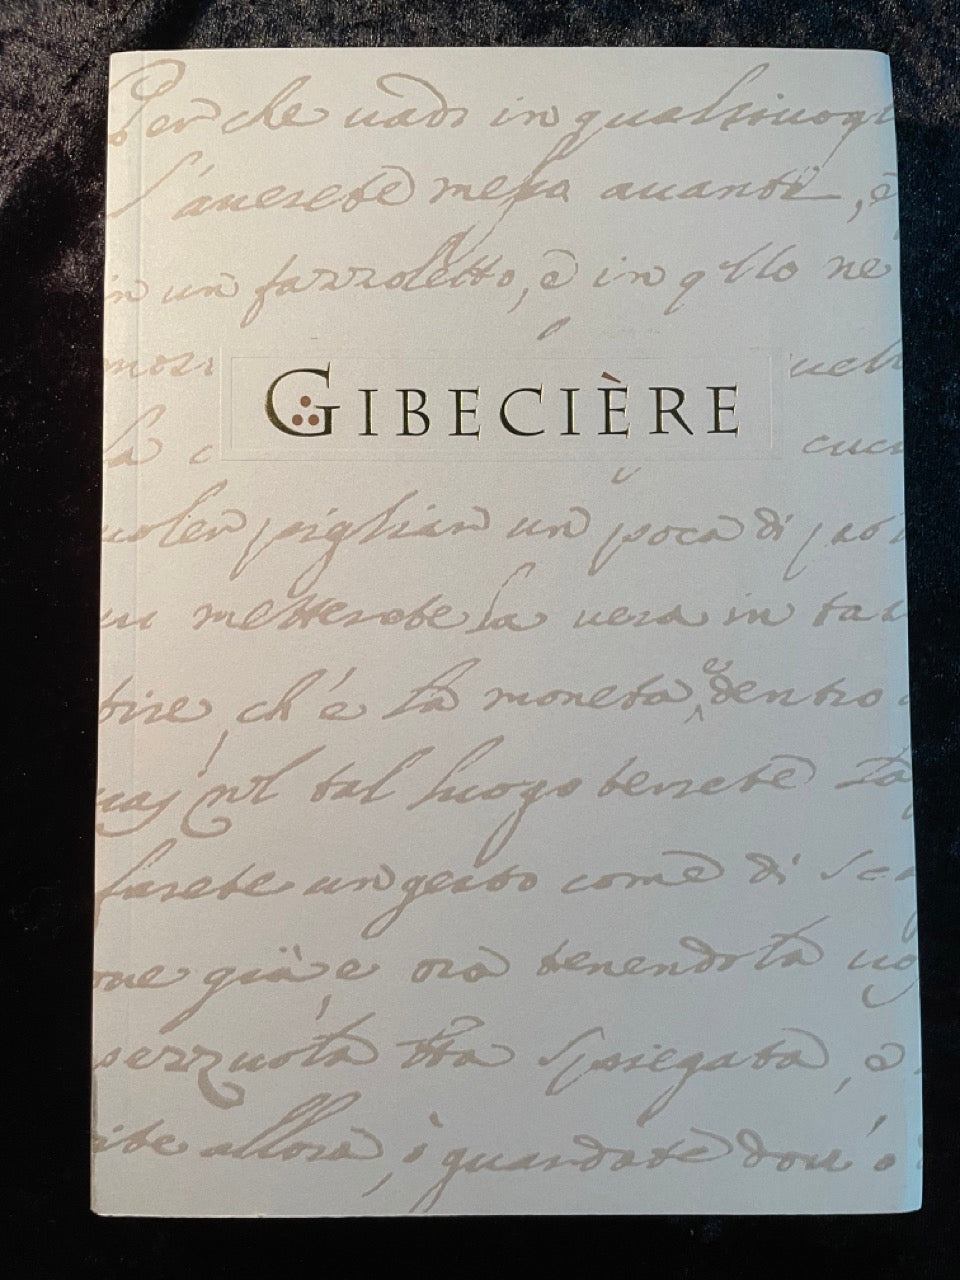 Per che uadi in qualsiuogl
l'auerete messa auanti, è
in un fazzoletto, è in qllo ne
mos
GIBECIÈRE
la
uoler pigliar un poca di
metterete la uera in tal
tire, ch'è la moneta, dentro
nel tal luogo terrete la
farete un gesto come di
one già e ora tenendola
pezzuola tta spiegata, è
allora, i guardate dou' è